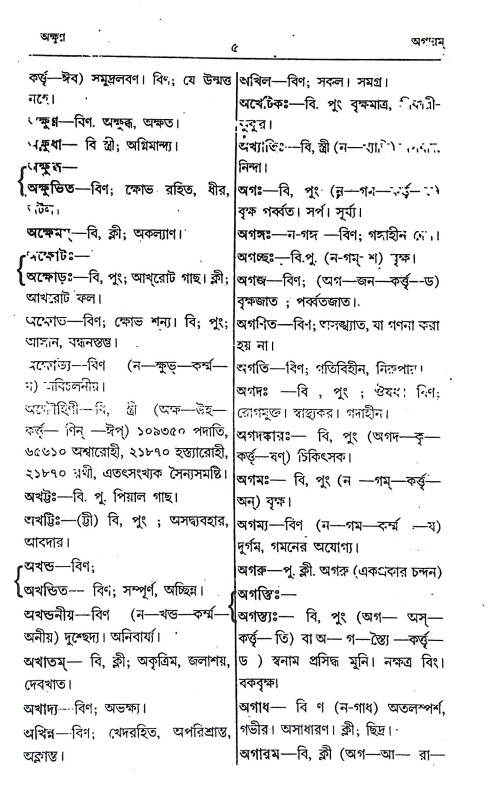 অক্ষুণ্ণ
৫
অগারম্
কর্ত্তৃ—ঈব) সমুদ্রলবণ। বিণ; যে উন্মত্ত
নহে।
অক্ষুণ্ন—বিণ. অক্ষুব্ধ, অক্ষত।
অক্ষুধা— বি স্ত্রী; অগ্নিমান্দ্য।
অক্ষুব্ধ—
অক্ষুভিত—বিণ; ক্ষোভ রহিত, ধীর,
অটল।
অক্ষেমম্—বি, ক্লী; অকল্যাণ।
অক্ষোটঃ—
অক্ষোড়ঃ—বি, পুং; আখ্‌রোট গাছ। ক্লী;
আখরোট ফল।
অক্ষোভ—বিণ; ক্ষোভ শন্য। বি; পুং;
আলান, বন্ধনস্তম্ভ।
অক্ষোভ্য--বিণ (ন—ক্ষুভ্—কর্ম্ম—
য) অবিচলনীয়।
অক্ষৌহিণী—বি, স্ত্রী (অক্ষ—উহ—
কর্ত্তৃ— ণিন্ —ঈপ্) ১০৯৩৫০ পদাতি,
৬৫৬১০ অশ্বারোহী, ২১৮৭০ হস্ত্যারোহী,
২১৮৭০ রথী, এতৎসংখ্যক সৈন্যসমষ্টি।
অখট্টঃ—বি. পু. পিয়াল গাছ।
অখট্টিঃ—(ট্টী) বি, পুং ; অসদ্ব্যবহার,
আবদার।
অখন্ড—বিণ;
অখন্ডিত— বিণ; সম্পূর্ণ, অচ্ছিন্ন।
অখন্ডনীয়—বিণ (ন—খন্ড—কর্ম্ম—
অনীয়) দুশ্ছেদ্য। অনিবার্য্য।
অখাতম্— বি, ক্লী; অকৃত্রিম, জলাশয়,
দেবখাত।
অখাদ্য—বিণ; অভক্ষ্য।
অখিন্ন—বিণ; খেদরহিত, অপরিশ্রান্ত,
অক্লান্ত।
অখিল—বিণ; সকল। সমগ্র।
অখেটিকঃ—বি. পুং বৃক্ষমাত্র,
কুকুর।
অখ্যাতিঃ—বি, স্ত্রী (ন—খ্যাতি)
নিন্দা।
অগঃ—বি, পুং (ন—গম—কর্ত্তৃ—ড)
বৃক্ষ পর্ব্বত। সর্প। সূর্য্য।
অগঙ্গঃ—ন-গঙ্গ —বিণ; গঙ্গাহীন দেশ।
অগচ্ছঃ—বি.পু. (ন-গম্- শ) বৃক্ষ।
অগজ—বিণ; (অগ—জন—কর্ত্তৃ--ড)
বৃক্ষজাত ; পর্ব্বতজাত।.
অগণিত—বিণ; অসঙ্খ্যাত, যা গণনা করা
হয় না।
অগতি—বিণ; গতিবিহীন, নিরুপায়।
অগদঃ —বি , পুং ; ঔষধ। বিণ;
রোগমুক্ত। স্বাস্থ্যকর। গদাহীন।
অগদঙ্কারঃ— বি, পুং (অগদ—কৃ—
কর্ত্তৃ—ষণ্) চিকিৎসক।
অগমঃ— বি, পুং (ন —গম্—কর্ত্তৃ—
অন্) বৃক্ষ।
অগম্য—বিণ (ন—গম—কর্ম্ম —য)
দুর্গম, গমনের অযোগ্য।
অগরু—পু. ক্লী. অগরু (একপ্রকার চন্দন)
অগস্তিঃ—
অগস্ত্যঃ— বি, পুং (অগ— অস্—
কর্ত্তৃ— তি) বা অ— গ—স্ত্যৈ —কর্ত্তৃ—
ড ) স্বনাম প্রসিদ্ধ মুনি। নক্ষত্র বিং।
বকবৃক্ষ।
অগাধ— বি ণ (ন-গাধ) অতলস্পর্শ,
গভীর। অসাধারণ। ক্লী; ছিদ্র।
অগারম—বি, ক্লী (অগ—আ— রা—